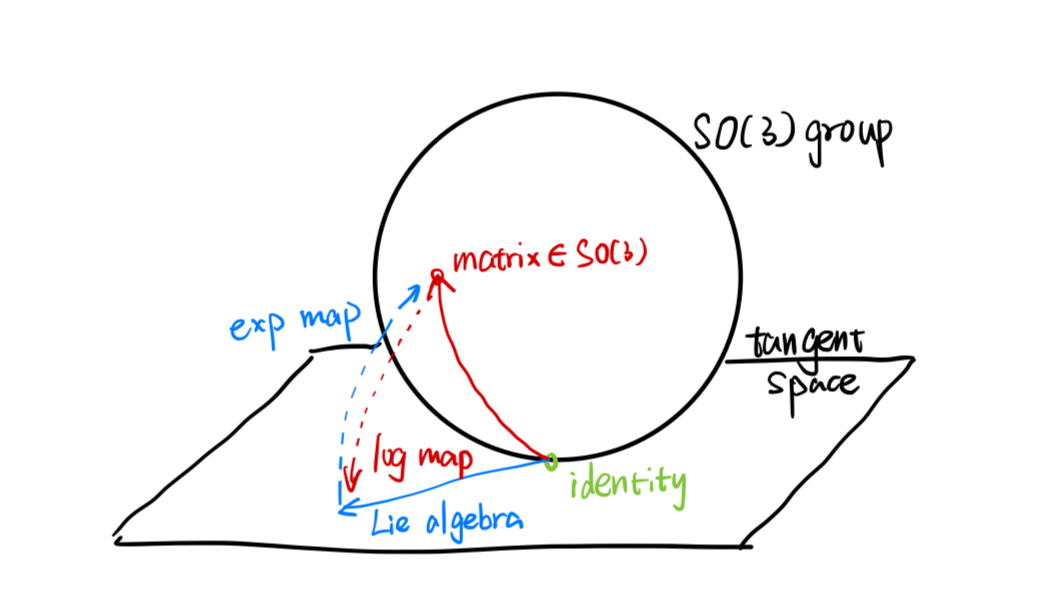 SO(3) group
matrix ∈ SO(3)
exp map
tangent
space
log map
identity
Lie algebra